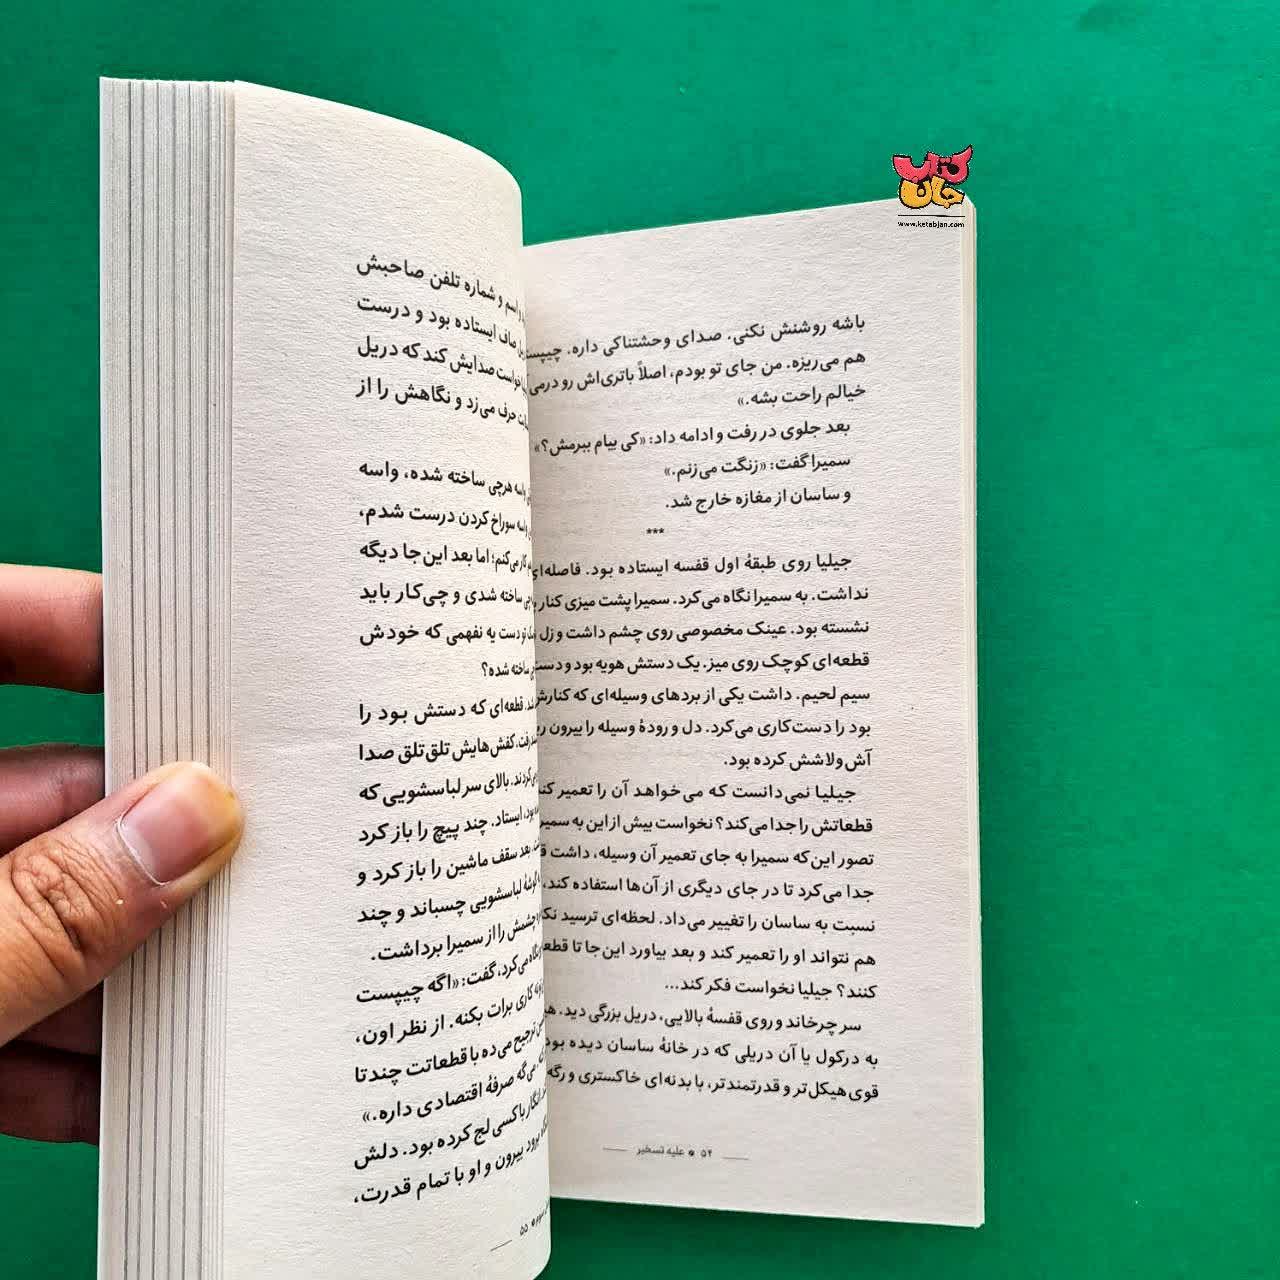 کتاب جان
www.ketabjan.com
باشه روشنش نکنی. صدای وحشتناکی داره.
هم می‌ریزه. من جای تو بودم، اصلاً باتری‌اش رو
خیالم راحت بشه.»
بعد جلوی در رفت و ادامه داد: «کی بیام ببرمش؟»
سمیرا گفت: «زنگت می‌زنم.»
و ساسان از مغازه خارج شد.
***
جیلیا روی طبقهٔ اول قفسه ایستاده بود. فاصله‌ای
نداشت. به سمیرا نگاه می‌کرد. سمیرا پشت میزی کنار
نشسته بود. عینک مخصوصی روی چشم داشت و زل
قطعه‌ای کوچک روی میز. یک دستش هویه بود و
سیم لحیم. داشت یکی از بردهای وسیله‌ای که کنارش
بود را دست‌کاری می‌کرد. دل و رودهٔ وسیله را بیرون
آش‌ولاشش کرده بود.
جیلیا نمی‌دانست که می‌خواهد آن را تعمیر
قطعاتش را جدا می‌کند؟ نخواست بیش از این به
تصور این‌که سمیرا به جای تعمیر آن وسیله، داشت
جدا می‌کرد تا در جای دیگری از آن‌ها استفاده کند،
نسبت به ساسان را تغییر می‌داد. لحظه‌ای ترسید
هم نتواند او را تعمیر کند و بعد بیاورد این‌جا تا
کنند؟ جیلیا نخواست فکر کند...
سر چرخاند و روی قفسهٔ بالایی، دریل بزرگی دید.
به درکول یا آن دریلی که در خانهٔ ساسان دیده بود
قوی هیکل‌تر و قدرتمندتر، با بدنه‌ای خاکستری و
۵۴ علیه تسخیر
اسم و شماره تلفن صاحبش
صاف ایستاده بود و درست
صدایش کند که دریل
حرف می‌زد و نگاهش را از
هرچی ساخته شده، واسه
سوراخ کردن درست شدم،
کار می‌کنم؛ اما بعد این‌جا دیگه
ساخته شدی و چی‌کار باید
تو دست یه نفهمی که خودش
ساخته شده؟
قطعه‌ای که دستش بود را
کفش‌هایش تلق‌تلق صدا
بالای سر لباسشویی که
بود، ایستاد. چند پیچ را باز کرد
بعد سقف ماشین را باز کرد و
گوشهٔ لباسشویی چسباند و چند
چشمش را از سمیرا برداشت.
نگاه می‌کرد، گفت: «اگه چیپست
کاری برات بکنه. از نظر اون،
ترجیح می‌ده با قطعاتت چندتا
می‌گه صرفهٔ اقتصادی داره.»
انگار با کسی لج کرده بود. دلش
برود بیرون و او با تمام قدرت،
۵۵